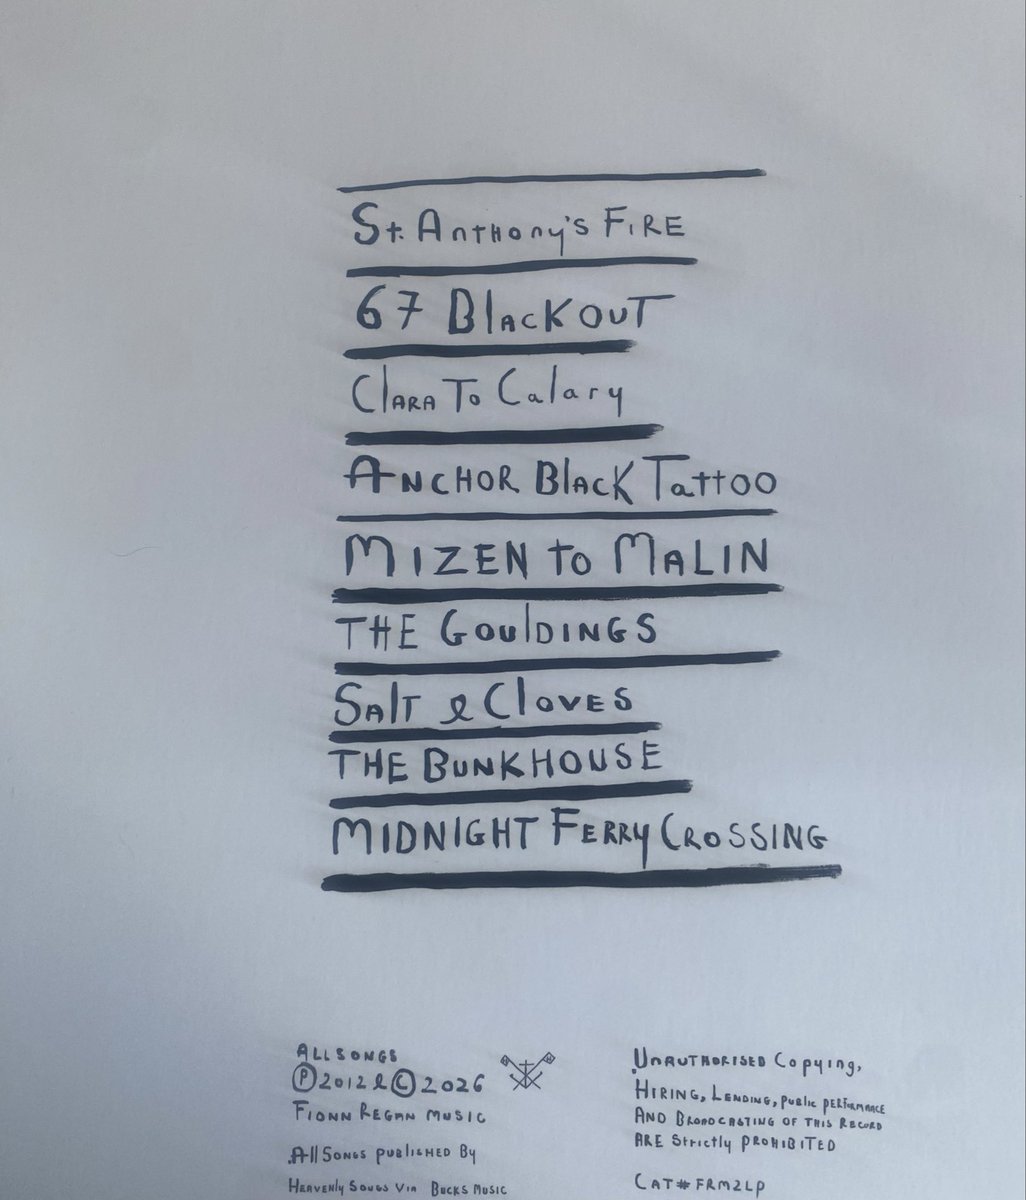 St. Anthony's Fire
67 Blackout
Clara To Calary
Anchor Black Tattoo
Mizen to Malin
The Gouldings
Salt & Cloves
The Bunkhouse
Midnight Ferry Crossing
All Songs
Ⓟ 2012 & © 2026
Fionn Regan Music
All Songs Published By
Heavenly Songs Via Bucks Music
Unauthorised Copying,
Hiring, Lending, public performance
And Broadcasting of this Record
are Strictly prohibited
Cat# FRM2LP